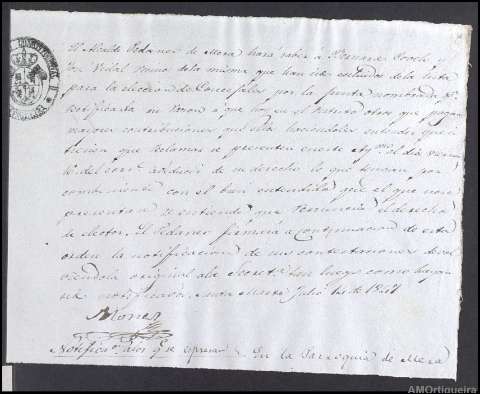 El Alcalde Pedaneo de Mera hara saber a
vecinos de la misma que han sido escluidos de la lista
para la eleccion de Concejales por la Junta nombrada
rectificarla en razon a que hay en el distrito otros que pagan
mayores contribuciones que ellos haciendoles entender que si
tienen que reclamar se presenten en este Aytº el dia
10 del corrte a deducir de su derecho lo que tengan por
combeniente con el bien entendido que el que no se
presentare se entiende que renuncia el derecho
de elector. El Pedaneo firmará a continuacion de esta
orden la notificacion de sus contestaciones devol
viendola original a la Secreta tan luego como haya
sido notificada. Santa Marta Julio de 1841
Notificon a los que espresa En la Parroquia de Mera
AMOrtigueira